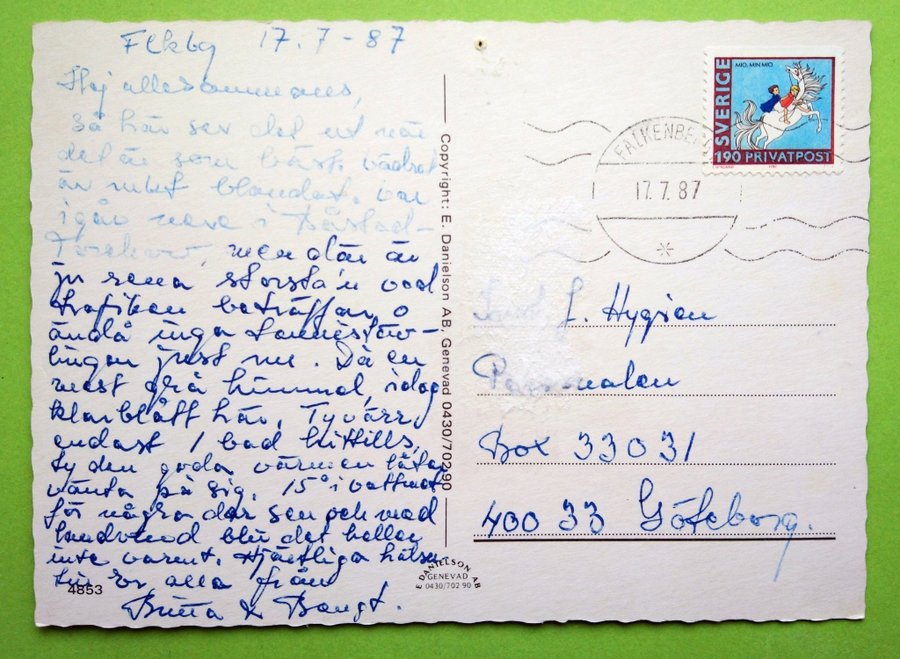 Flkbg 17.7-87
Hej allesammans,
Så här ser det ut när
det är som bäst. Vädret
är mest blandat. Var
igår nere i Båstad-
Torekov, men där är
ju rena storsta'n vad
trafiken beträffar o
ändå inga tennistäv-
lingar just nu. Då en
mest grå himmel, idag
klarblått här. Tyvärr
endast 1 bad hittills,
ty den goda värmen låter
vänta på sig. 15° i vattnet
för några dar sen och med
landvind blir det heller
inte varmt. Hjärtliga häls-
till er alla från
Britta & Bengt.
4853
Copyright: E. Danielson AB. Genevad 0430/702 90
E DANIELSON AB
GENEVAD
0430/702 90
SVERIGE
MIO, MIN MIO
1.90 PRIVATPOST
FALKENBERG
17.7.87
f. Hygien
Box 33031
400 33 Göteborg.